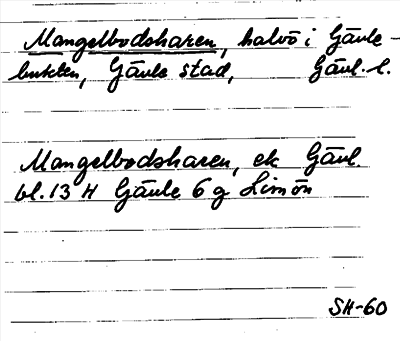 Mangelbodsharen, halvö i Gävle-
bukten, Gävle stad, Gävl. l.
Mangelbodsharen, ek Gävl.
bl. 13 H Gävle 6 g Limön
SH-60